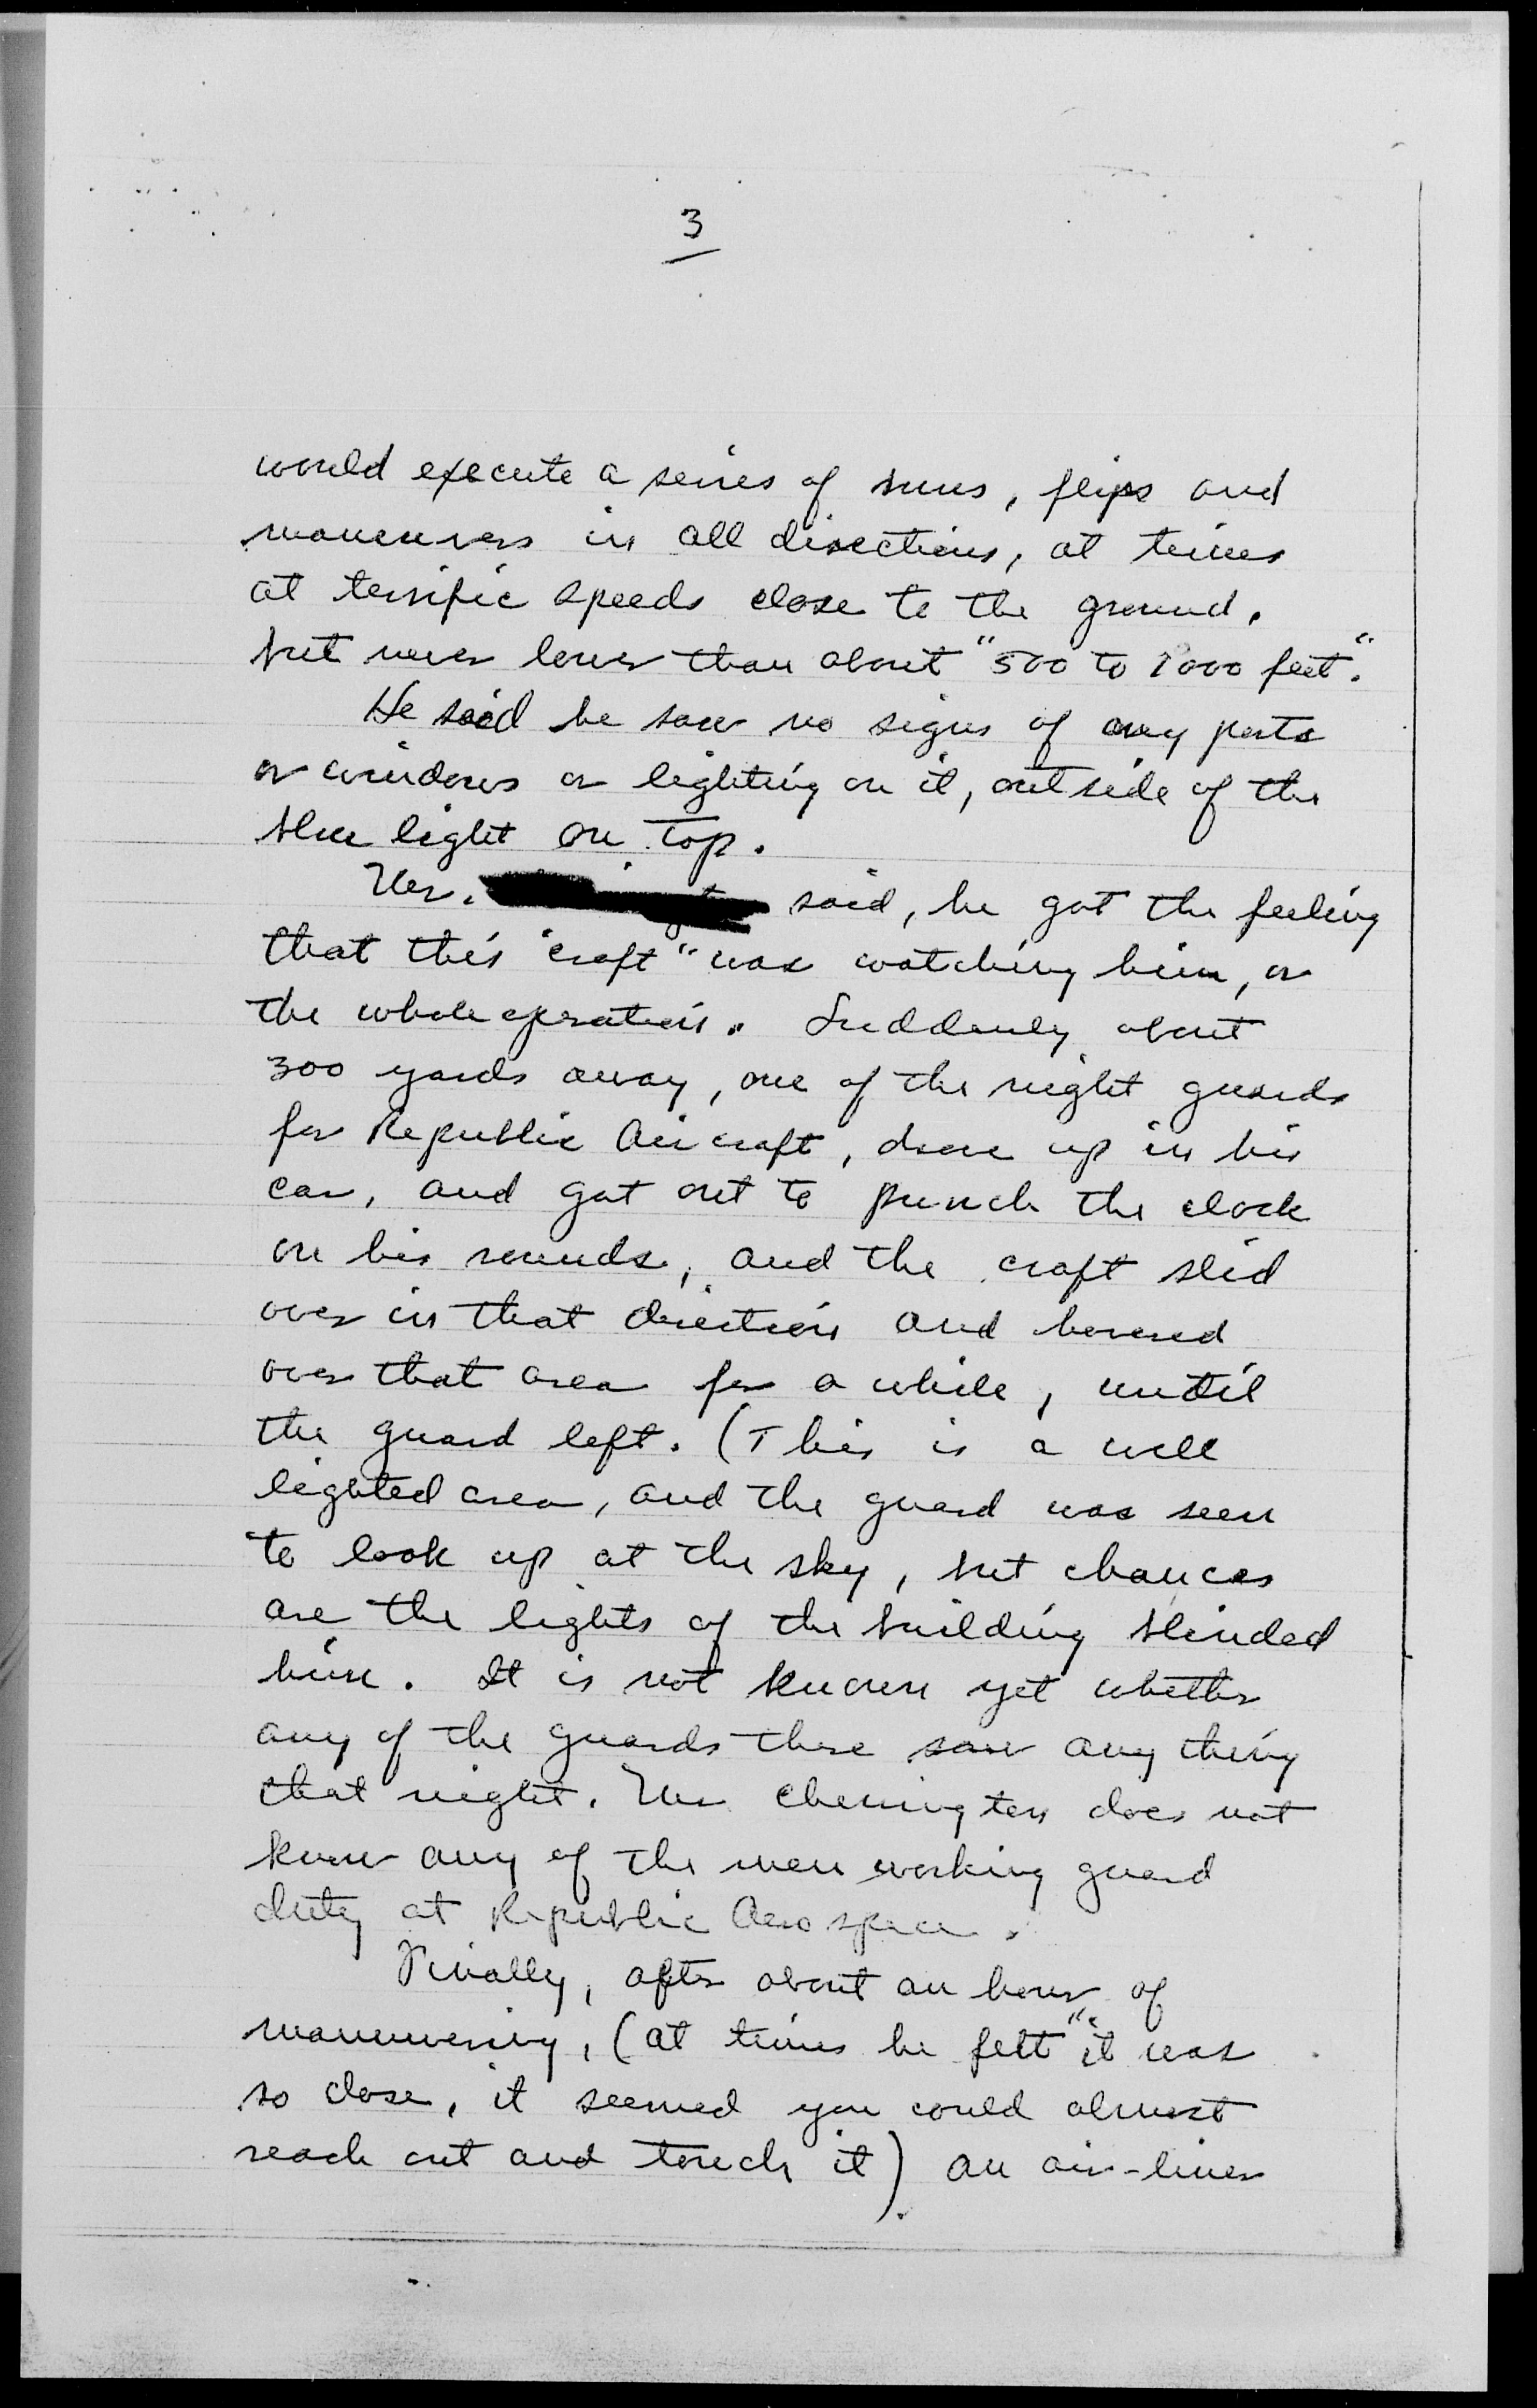 3
would execute a series of turns, flips and
maneuvers in all directions, at times
at terrific speeds close to the ground,
but never lower than about "500 to 1000 feet".
He said he saw no signs of any ports
or windows or lighting on it, outside of the
blue light on top.
Mr. said, he got the feeling
that this "craft" was watching him, or
the whole operation. Suddenly about
300 yards away, one of the night guards
for Republic Aircraft, drove up in his
car, and got out to punch the clock
on his rounds, and the craft slid
over in that direction and hovered
over that area for a while, until
the guard left. (This is a well
lighted area, and the guard was seen
to look up at the sky, but chances
are the lights of the building blinded
him. It is not known yet whether
any of the guards there saw any thing
that night. Mr Cherrington does not
know any of the men working guard
duty at Republic Aerospace.
Finally, after about an hour of
maneuvering, (at times he felt "it was
so close, it seemed you could almost
reach out and touch it) an air-liner